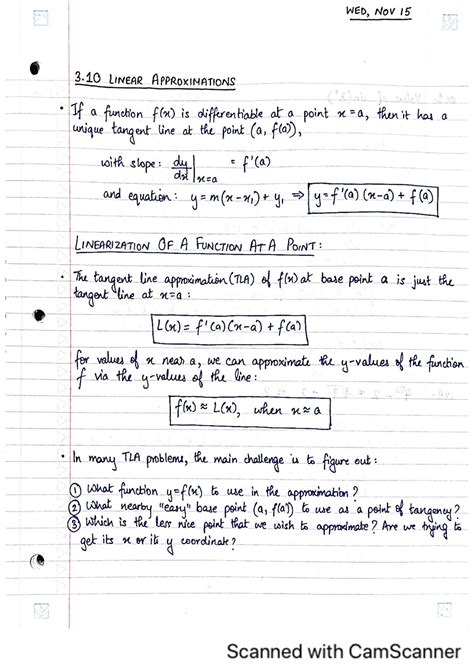 WED, NOV 15
3.10 LINEAR APPROXIMATIONS
• If a function f(x) is differentiable at a point x = a, then it has a
unique tangent line at the point (a, f(a)),
with slope: dy/dx |x=a = f'(a)
and equation: y = m(x - x₁) + y₁ ⇒ y = f'(a) (x-a) + f(a)
LINEARIZATION OF A FUNCTION AT A POINT:
• The tangent line approximation (TLA) of f(x) at base point a is just the
tangent line at x=a :
L(x) = f'(a)(x-a) + f(a)
for values of x near a, we can approximate the y-values of the function
f via the y-values of the line :
f(x) ≈ L(x), when x ≈ a
• In many TLA problems, the main challenge is to figure out :
① What function y=f(x) to use in the approximation ?
② What nearby "easy" base point (a, f(a)) to use as a point of tangency ?
③ Which is the less nice point that we wish to approximate ? Are we trying to
get its x or its y coordinate ?
Scanned with CamScanner